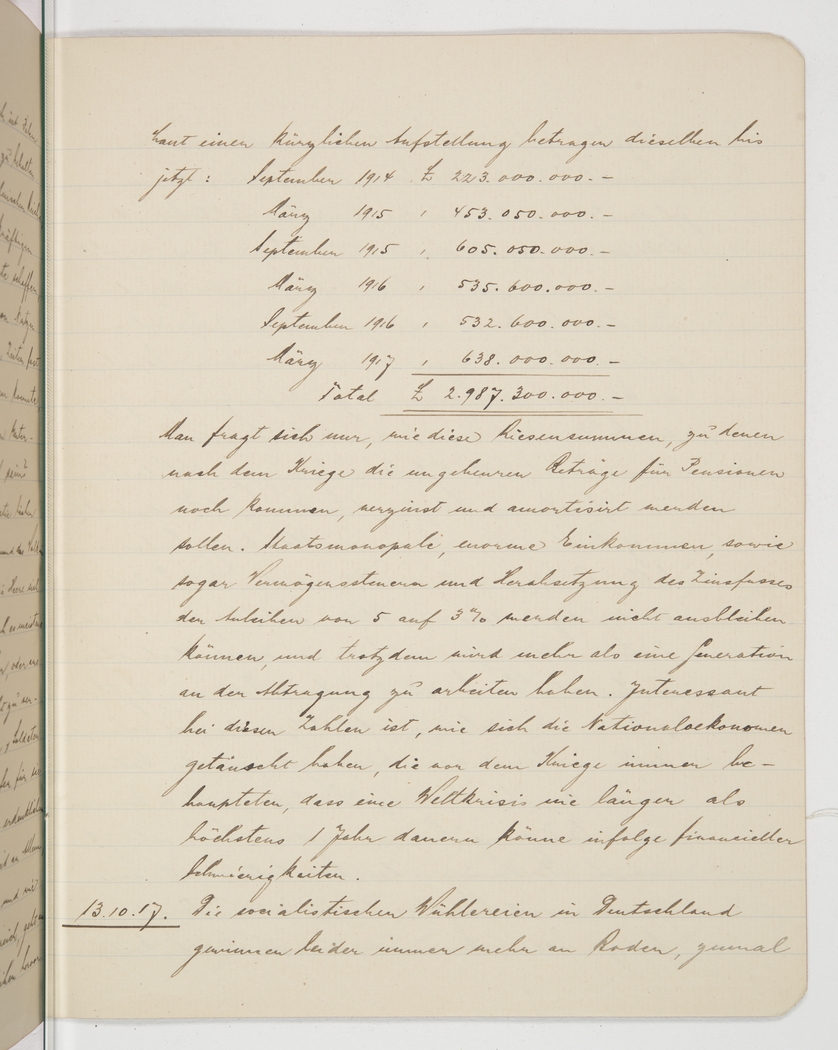 Laut einer kürzlichen Aufstellung betragen dieselben bis
jetzt : September 1914 £ 223.000.000.-
März 1915 " 453.050.000.-
September 1915 " 605.050.000.-
März 1916 " 535.600.000.-
September 1916 " 532.600.000.-
März 1917 " 638.000.000.-
Total £ 2.987.300.000.-
Man fragt sich nur, wie diese Riesensummen, zu denen
nach dem Kriege die ungeheuren Beträge für Pensionen
noch kommen, verzinst und amortisirt werden
sollen. Staatsmonopole, enorme Einkommen, sowie
sogar Vermögenssteuern und Herabsetzung des Zinsfusses
der Anleihen von 5 auf 3% werden nicht ausbleiben
können, und trotzdem wird mehr als eine Generation
an der Abtragung zu arbeiten haben. Interessant
bei diesen Zahlen ist, wie sich die Nationaloekonomen
getäuscht haben, die vor dem Kriege immer be-
haupteten, dass eine Weltkrisis nie länger als
höchstens 1 Jahr dauern könne infolge finanzieller
Schwierigkeiten.
13.10.17. Die socialistischen Wühlereien in Deutschland
gewinnen leider immer mehr an Boden, zumal